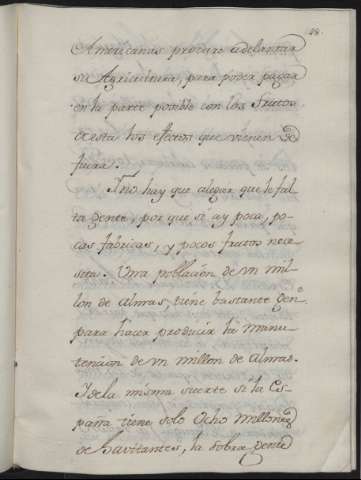 48.
Americanas procure adelantar
su Agricultura, para poder pagar
en la parte posible con los Frutos
de esta los efectos que vienen de
fuera.
Y no hay que alegar que le fal-
ta gente, por que si ay poca, po-
cas fabricas, y pocos frutos nece-
sita. Una poblacion de un mi-
llon de almas, tiene bastante gente
para hacer producir la manu-
tencion de un millon de almas.
Y de la misma suerte si la Es-
paña tiene solo Ocho millones
de havitantes, la sobra gente